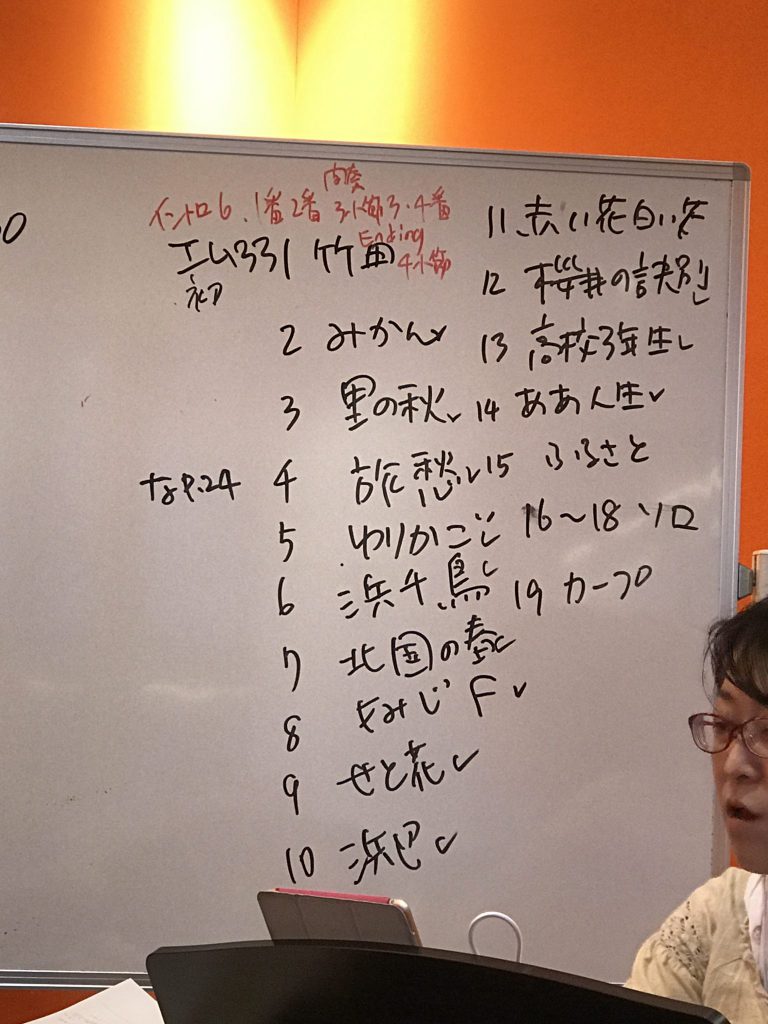 間奏
イントロ6. 1番2番 3小節 3・4番
Ending
4小節
エム33 1 竹田
初
2 みかん
3 里の秋
なP.24 4 旅愁
5 ゆりかご
6 浜千鳥
7 北国の春
8 もみじ F
9 せと花
10 浜巴
11、赤い花白い花
12 桜井の訣別
13 高校3年生
14 ああ人生
15 ふるさと
16〜18 ソロ
19 カープ